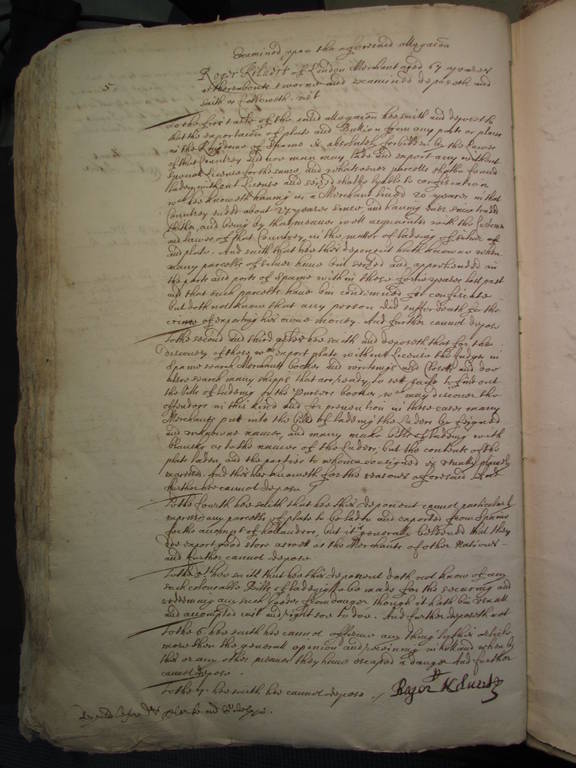 Examined upon the aforesaid allegacon
Roger Kilvert of London Merchant aged 67 yeares
5
or thereabouts sworne and examined deposeth and
saith as followeth. vizt
To the first arle of the said allegacon hee saith and deposeth
that the exportacon of plate and Bullion from any ports or places
in the Kingdome of Spaine is absolutely forbidden by the lawes
of that Countrey and noe man may lade and export any without
speciall License for the same, and whatsoever parcells shalbe found
laden without License and seized shalbe lyable to confiscation
hee knoweth having as a Merchant lived 20 yeares in that
Countrey ended about 27 yeares since, and having ever since traded
thether, and being by that meanes well acquainted with the Customes
and lawes of that Countrey in the matter of ladeing of silver
and plate. And saith that hee this deponent hath knowne when
many parcells of silver have bin seized and apprehended in
the ports and parts of Spaine within these fortie yeares last past
and that such parcells have bin condemned for confiscate
but doth not know that any person did suffer death for the
crime of exporting his owne money. And further cannot depose
To the second and third arles hee saith and deposeth that for the
discovery of those wch export plate without License the Judges in
Spaine search Merchants bookes and writeings and Closetts and doe
alsoe search many shipps that are ready to set saile to find out
the bills of ladeing or the Pursers bookes wch may discover the
offendors in this kind and for prevention in these cases many
Merchants put into the bills of ladeing the Laders by feigned
and unknowne names, and many make bills of ladeing with
blancks as to the names of the laders, but the contents of the
plate laden and the parties to whom consigned is usually plainely
inserted. And this hee knoweth for the reasons aforesaid And
further hee cannot depose
To the fourth hee saith that hee this deponent cannot particularly
expresse any parcells of plate to be laden and exported from Spaine
for the accompt of hollanders, but it is generally beleeved that they
doe export good store as well as the Merchants of other Nations
and further cannot depose
To the 5 hee saith that hee this deponent doth not know of any
such colourable bills of ladeing to be made for the secureing and
redeeming any such lader from danger though it hath bin usuall
and accompted just and right soe to doe. And further deposeth not
To the 6 hee saith he cannot affirme any thing to this article
more then the generall opinion and
this or any other meanes they have escaped a danger And further
cannot depose
To the 7. hee saith hee cannot depose
Roger Kilvert